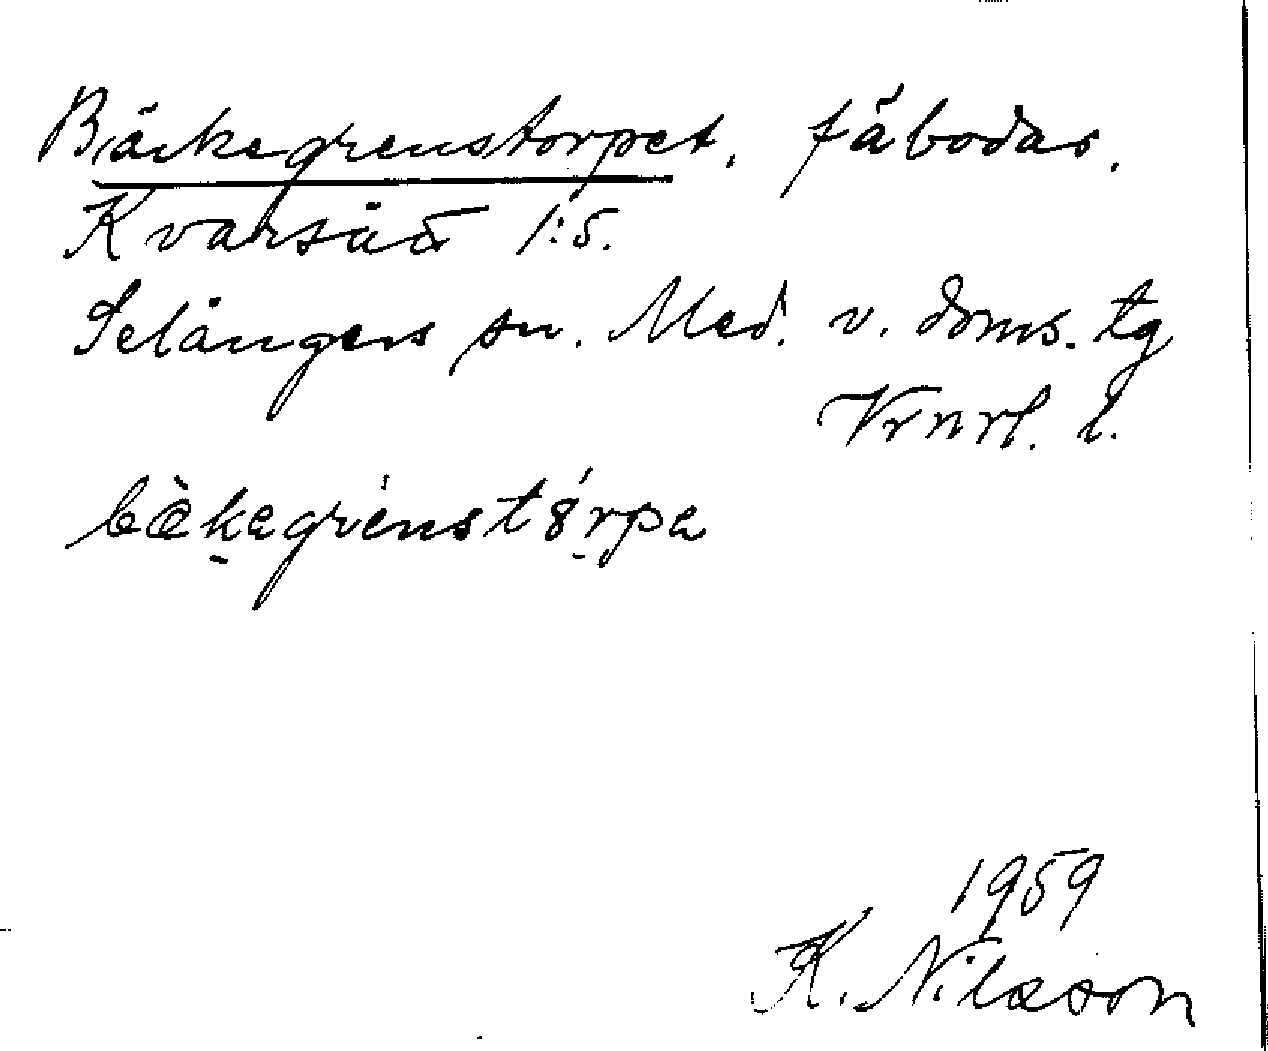 Bäckegrenstorpet. fäbodar.
Kvarsätt 1:5.
Selångers sn. Med. v. doms. tg
Vrnrl. l.
bäkegrenstôrpa
1959
K. Nilsson